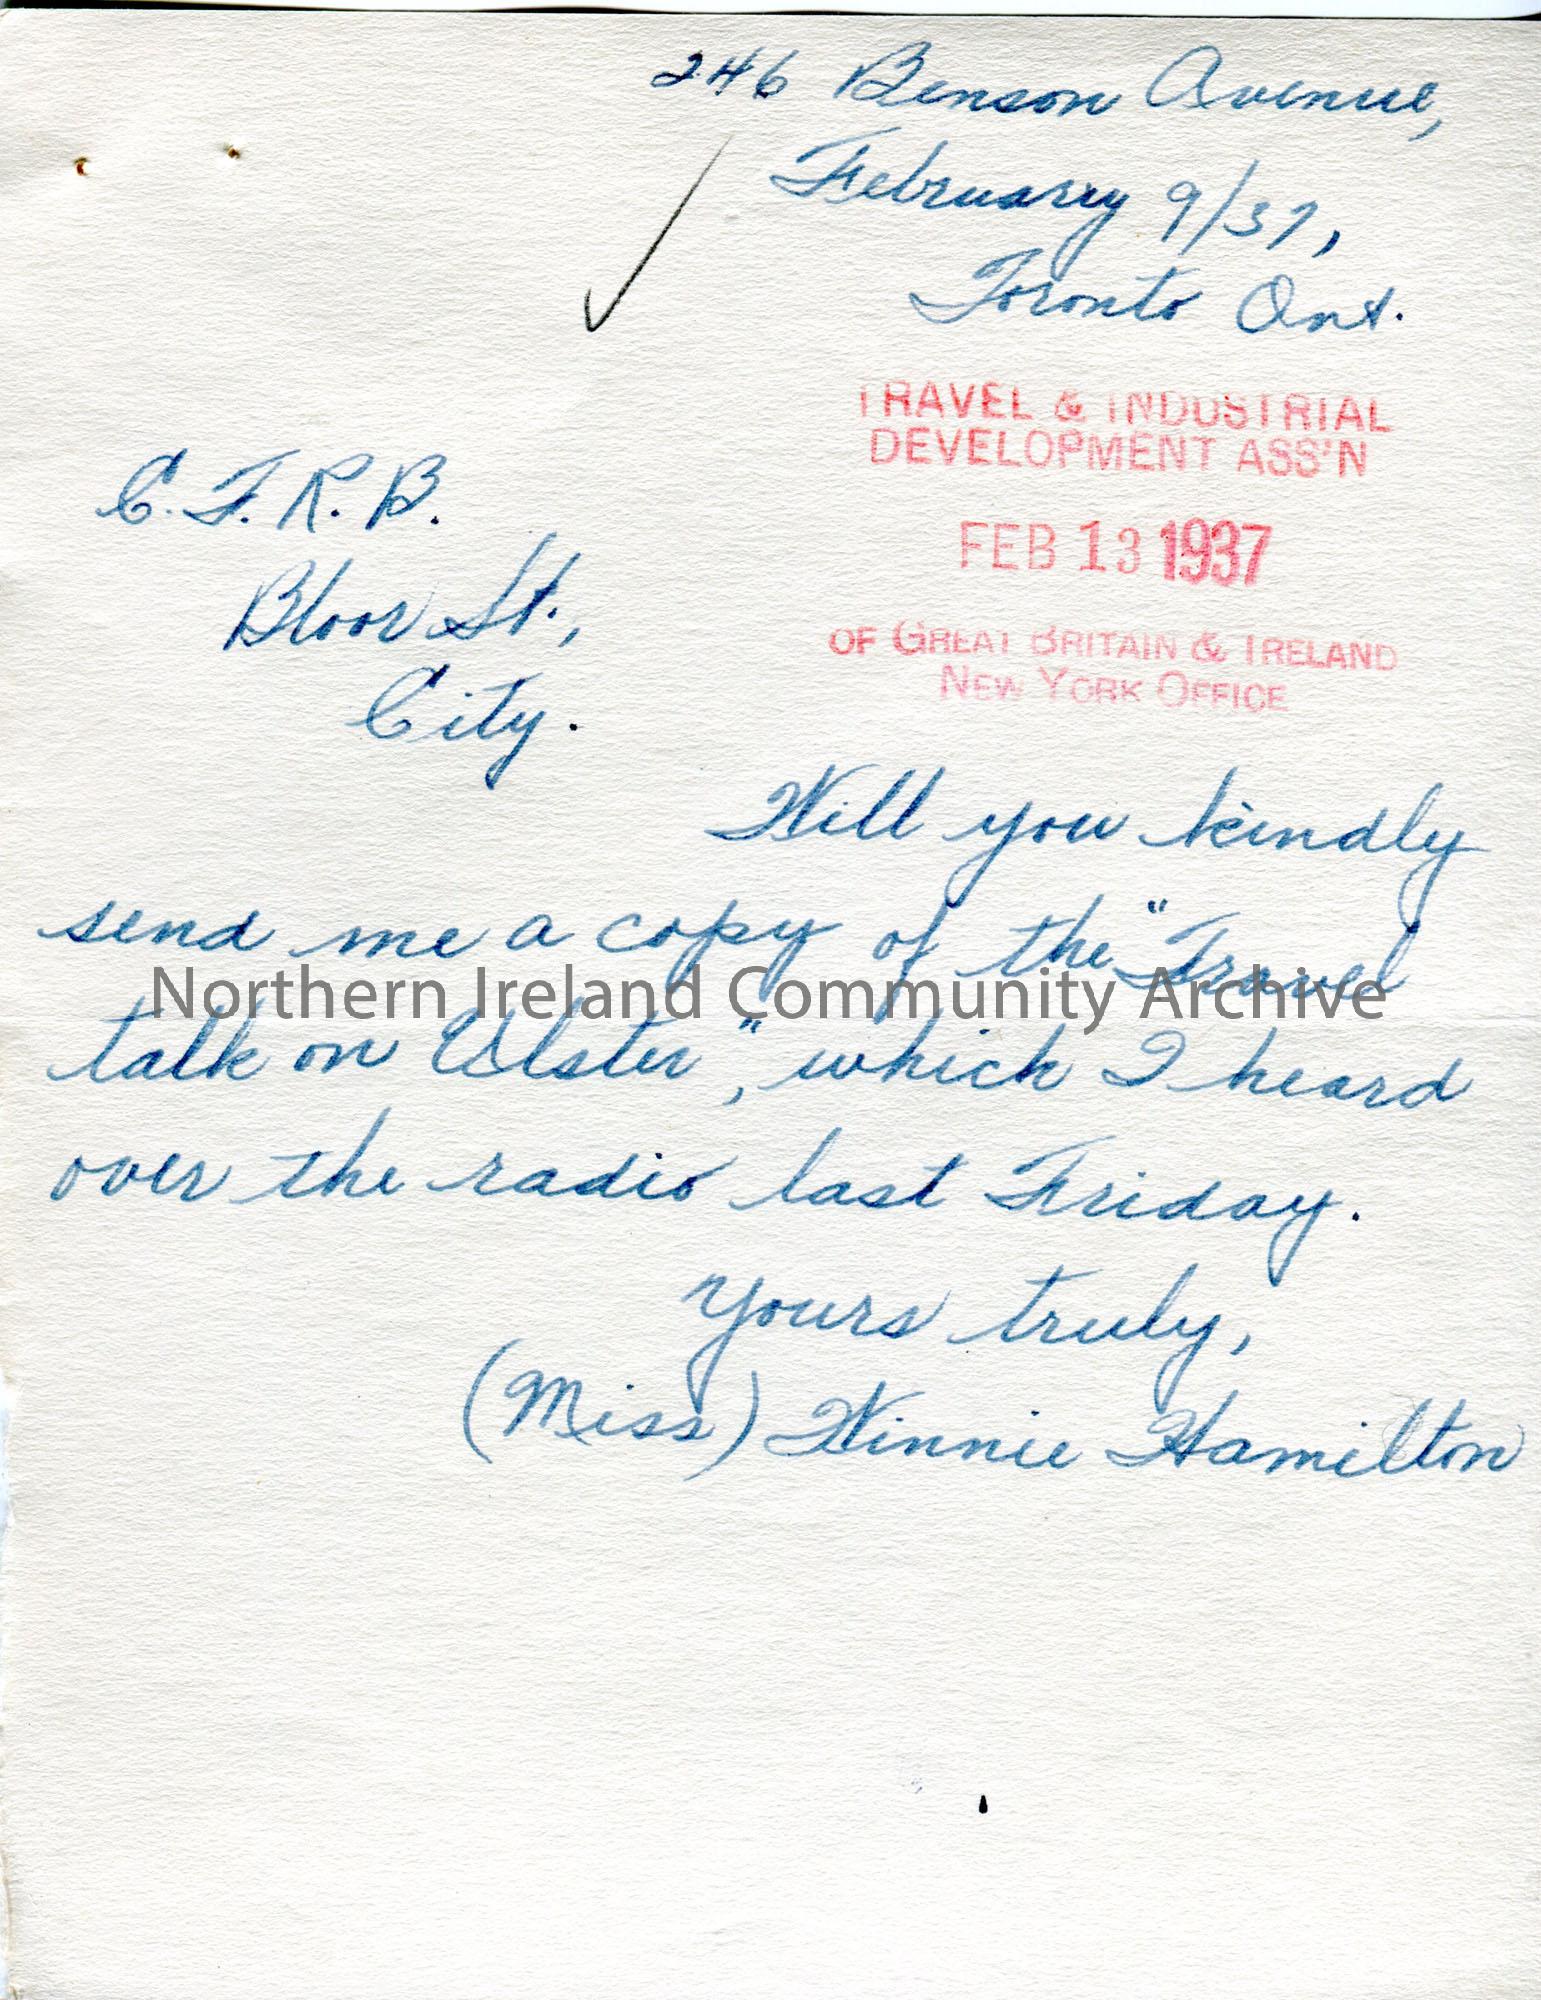 246 Benson Avenue,
February 9/37,
Toronto Ont.
TRAVEL & INDUSTRIAL
DEVELOPMENT ASS'N
FEB 13 1937
OF GREAT BRITAIN & IRELAND
NEW YORK OFFICE
C.F.R.B.
Bloor St.,
City.
Will you kindly
send me a copy of the "Travel
Northern Ireland Community Archive
talk on Ulster," which I heard
over the radio last Friday.
Yours truly,
(Miss) Winnie Hamilton